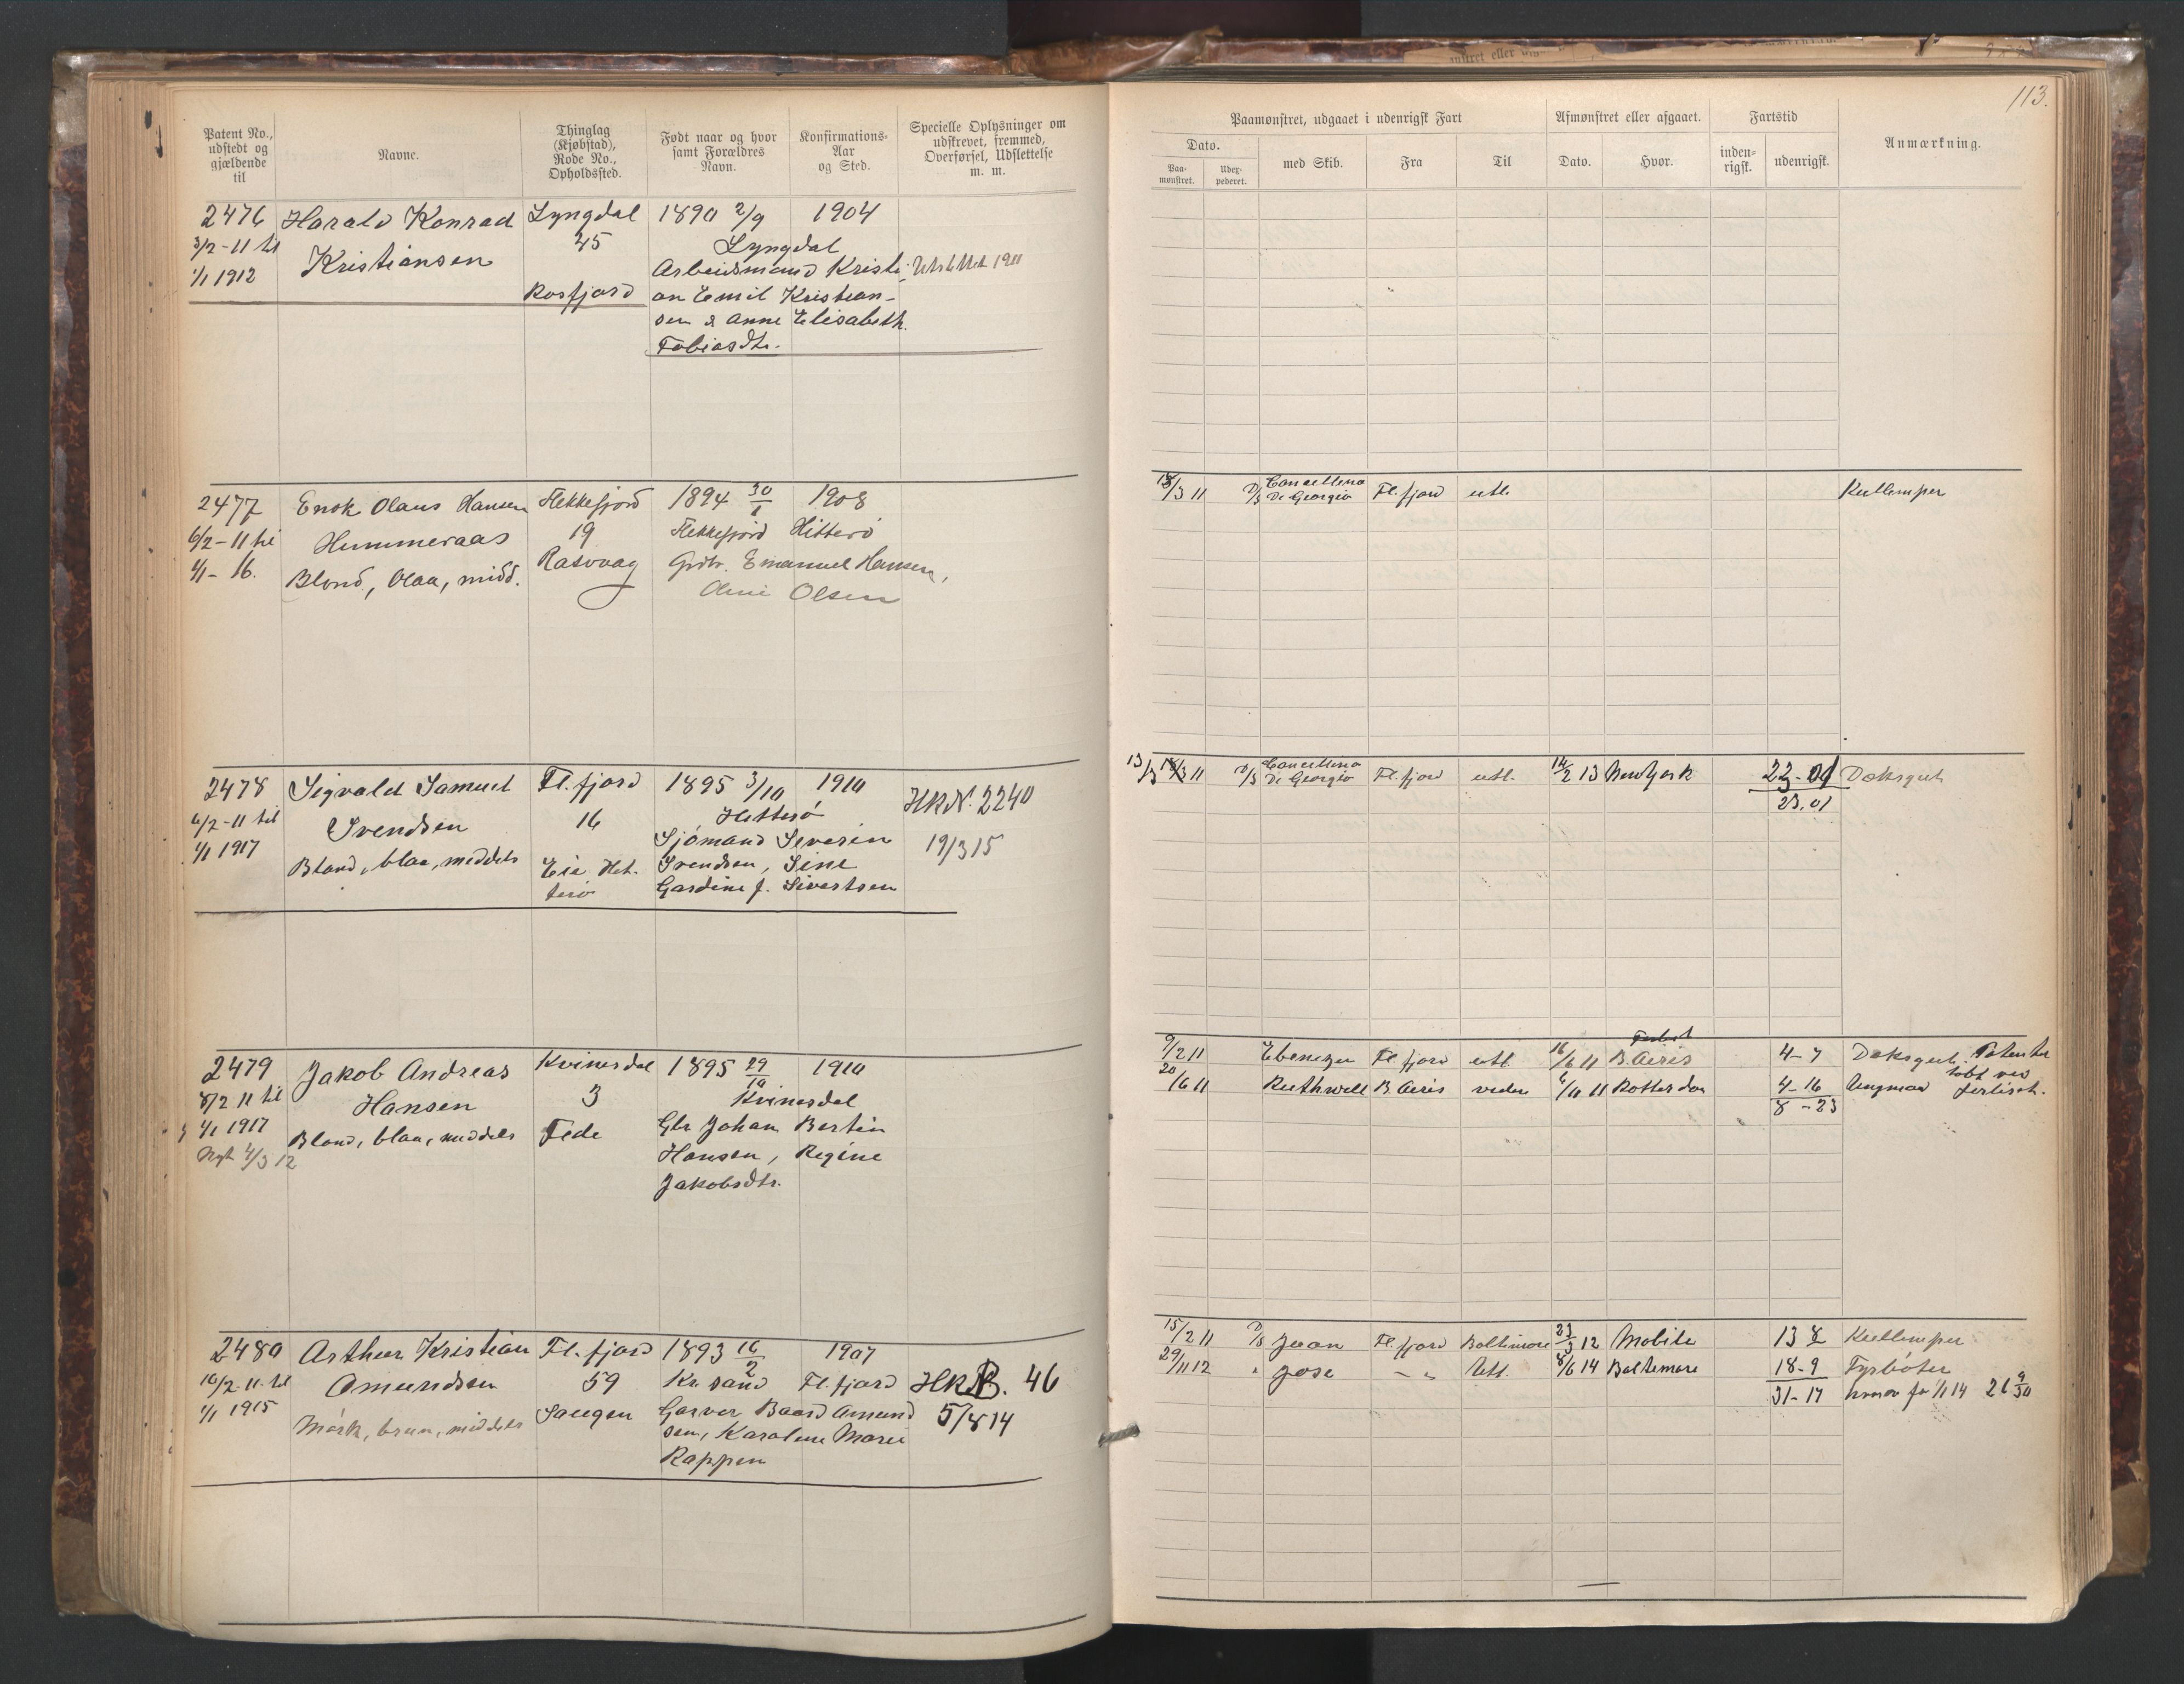 113.
Patent No., udstedt og gjældende til
Navne.
Thinglag (Kjøbstad), Rode No., Opholdssted.
Født naar og hvor samt Forældres Navn.
Konfirmations-Aar og Sted.
Specielle Oplysninger om udskrevet, fremmed, Overførsel, Udslettelse m. m.
Paamønstret, udgaaet i udenrigsk Fart
Afmønstret eller afgaaet.
Fartstid
Anmærkning.
Dato.
Paa-mønstret.
Udex-pederet.
med Skib.
Fra
Til
Dato.
Hvor.
inden-rigsk.
udenrigsk.
2476 Harald Konrad Lyngdal 1890 2/9 1904
3/2-11 til Kristiansen 45 Lyngdal
1/1 1912 Rosfjord Arbeidsmand Kristi-
an Emil Kristian-
sen & Anne Elisabeth
Tobiasdtr.
2477 Enok Olaus Hansen Flekkefjord 1894 30/1 1908
6/2-11 til Hummeraas 19 Flekkefjord Hitterö
1/1- 16. Blond, blaa, midd. Rasvaag Grdbr. Emanuel Hansen,
Olsen
18/3 11 D/S Di Georgio Fl.fjord utl. Kullemper
2478 Sigvald Samuel Fl.fjord 1895 3/10 1910
6/2-11 til Svendsen 16 Hitterö HKN. 2240
1/1 1917 Blond, blaa, middels Eie Hit-terö Sjömand Severin 19/3 15
Svendsen, Sine
Gardine f. Sivertsen
13/3 11 D/S Di Georgio Fl.fjord utl. 14/2 13 New York 22-01 Doksgut
23.01
2479 Jakob Andreas Kvinesdal 1895 29/10 1910
8/2 11 til Hansen 3 Kvinesdal
1/1 1917 Blond, blaa, middels Fede Gbr Johan Bertin
Nyt 4/3 12 Hansen, Regine
Jakobsdtr.
9/2 11 Ebenezer Fl.fjord utl 16/6 11 B.Aires 4-7 Doksgut. Patentet tabt ved forlis
20/6 11 Ruthwell B.Aires viden 6/11 11 Rotterdam 4-16 Ungmand
8-23
2480 Arthur Kristian Fl.fjord 1893 16/2 1907
10/2-11 til Amundsen 59 Kr.sand Fl.fjord HKB. 46
1/1 1915 Mörk, brun, middels Saugen Garver Baard Amund 5/8 14
sen, Karoline Marie
Rappen
15/2 11 D/S Juan Fl.fjord Baltimore 23/3 12 Mobile 13 8 Kullemper
29/11 12 " Jose - " Utl. 8/6 14 Baltemore 18-9 Fyrböter
31-17 hvorav før 1/1 14 26 9/30